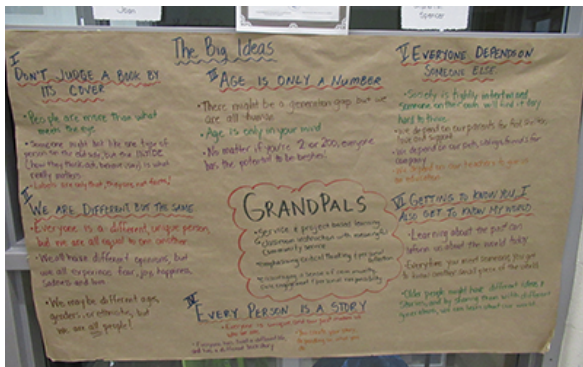 Jean
Spencer
The Big Ideas
I
DON'T JUDGE A BOOK BY
ITS COVER
• People are more than what
meets the eye
• Someone might look like one type of
person on the outside, but the inside
(how they think, act, behave, etc) is what
really matters
• Labels are only that, they are not
II
WE ARE DIFFERENT BUT THE SAME
• Everyone is a different, unique person,
but we are all equal to one another
• We all have different opinions, but
we all experience fear, joy, happiness,
sadness and love
• We may be different ages,
genders, or ethnicities, but
we are all people!
III AGE IS ONLY A NUMBER
• There might be a generation gap but we
are all human
• Age is only in your mind
• No matter if you're 2 or 200, everyone
has the potential to be
GRANDPALS
• Service & project based learning
• Classroom instruction with meaningful
community service
• emphasizing critical thinking & personal
reflection
• Encourages a sense of community,
civic engagement & personal responsibility
IV
EVERY PERSON IS A STORY
• Everyone is unique and our past makes us
who we are
• Everyone has lived a different life
and has a different back story
V EVERYONE DEPENDS ON
SOMEONE ELSE
• Society is highly intertwined
someone on their own will find it very
hard to thrive
• We depend on our parents for
love and support
• We depend on our pets, siblings, friends for
company
• We depend on our teachers to give us
an education
VI GETTING TO KNOW YOU I
ALSO GET TO KNOW MY WORLD
• Learning about the past can
inform us about the world today
• Everytime you meet someone, you get
to know another small piece of the world
• Older people might have different ideas &
stories, and by sharing them with different
generations, we can learn about our world.